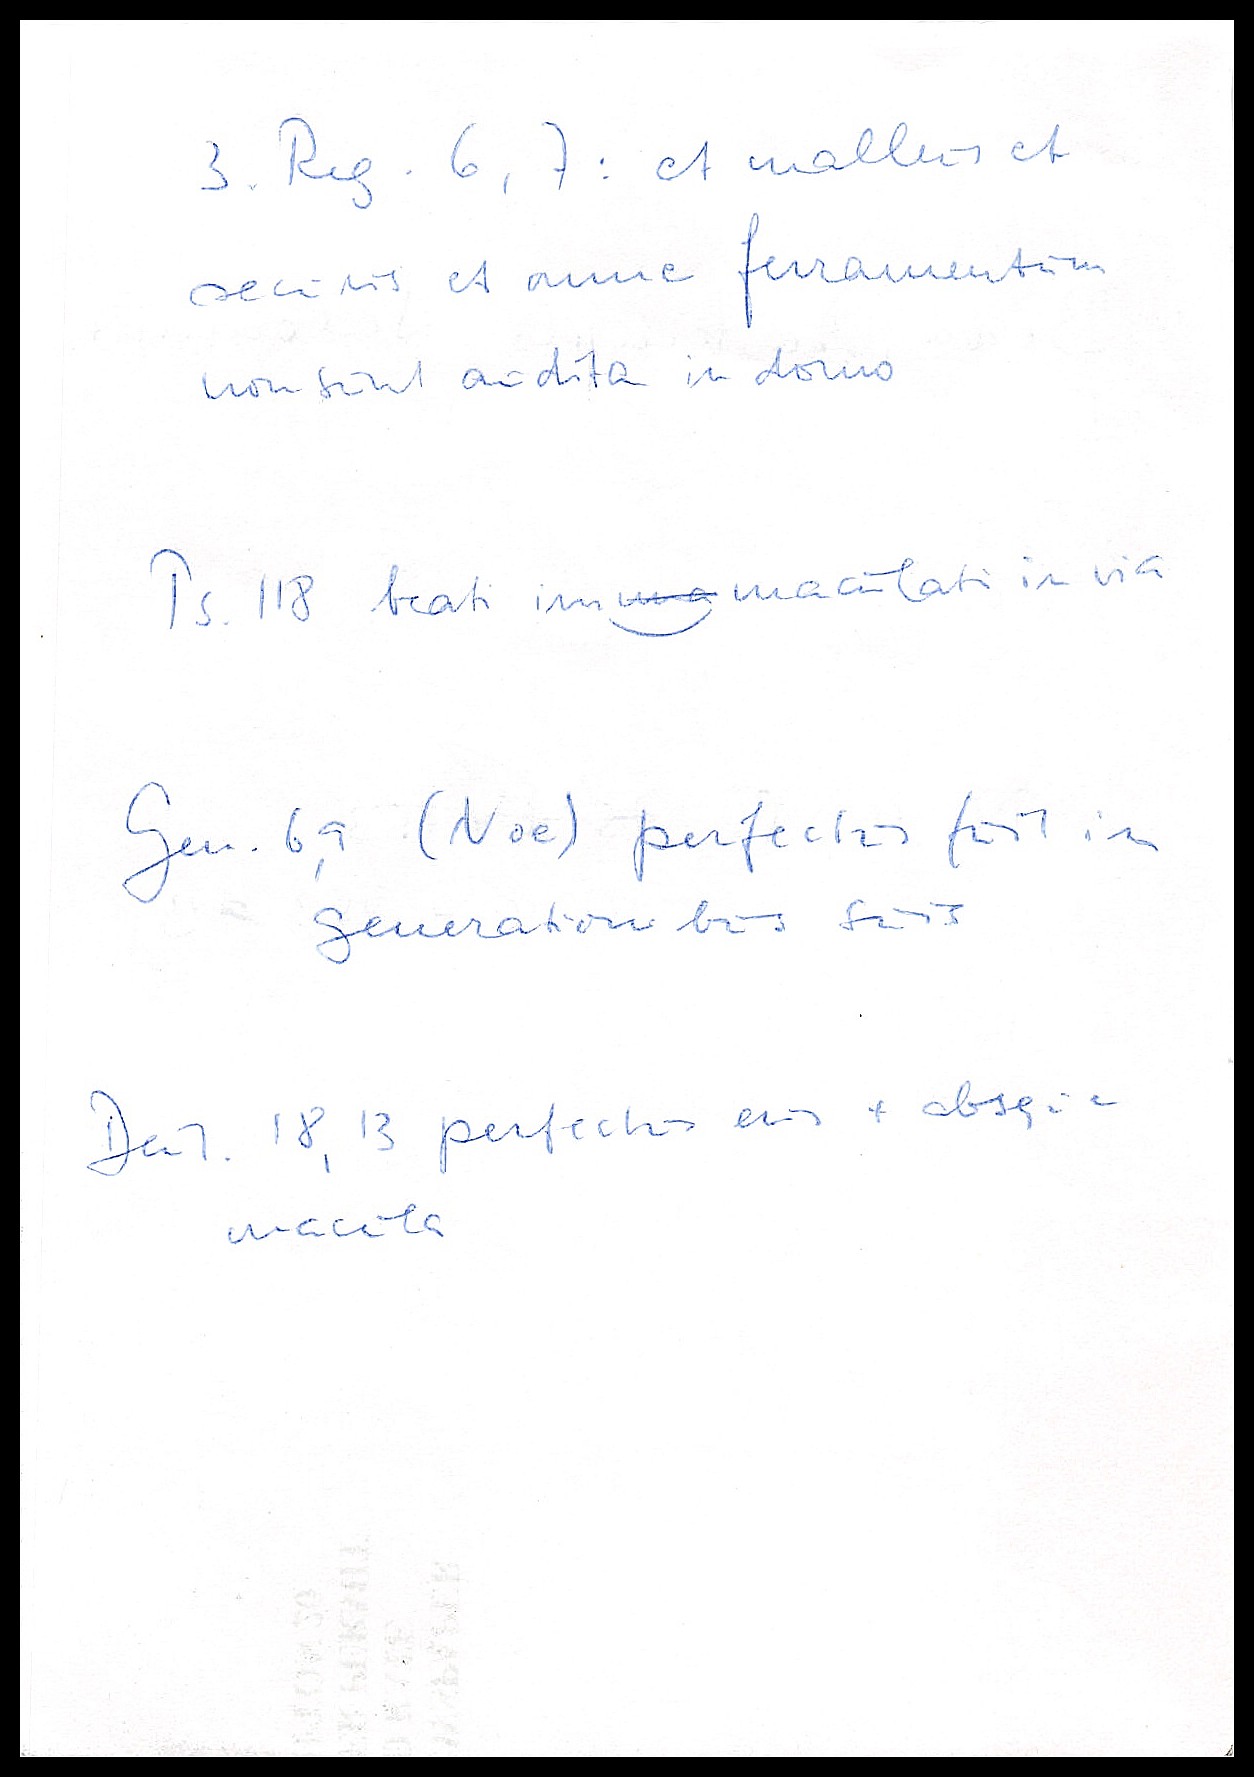 3. Reg. 6, 7: et malleus et
securis et omne ferramentum
non sunt audita in domo
Ps. 118 beati immaculati in via
Gen. 6,9 (Noe) perfectus fuit in
generationibus suis
Deut. 18, 13 perfectus eris + absque
macula